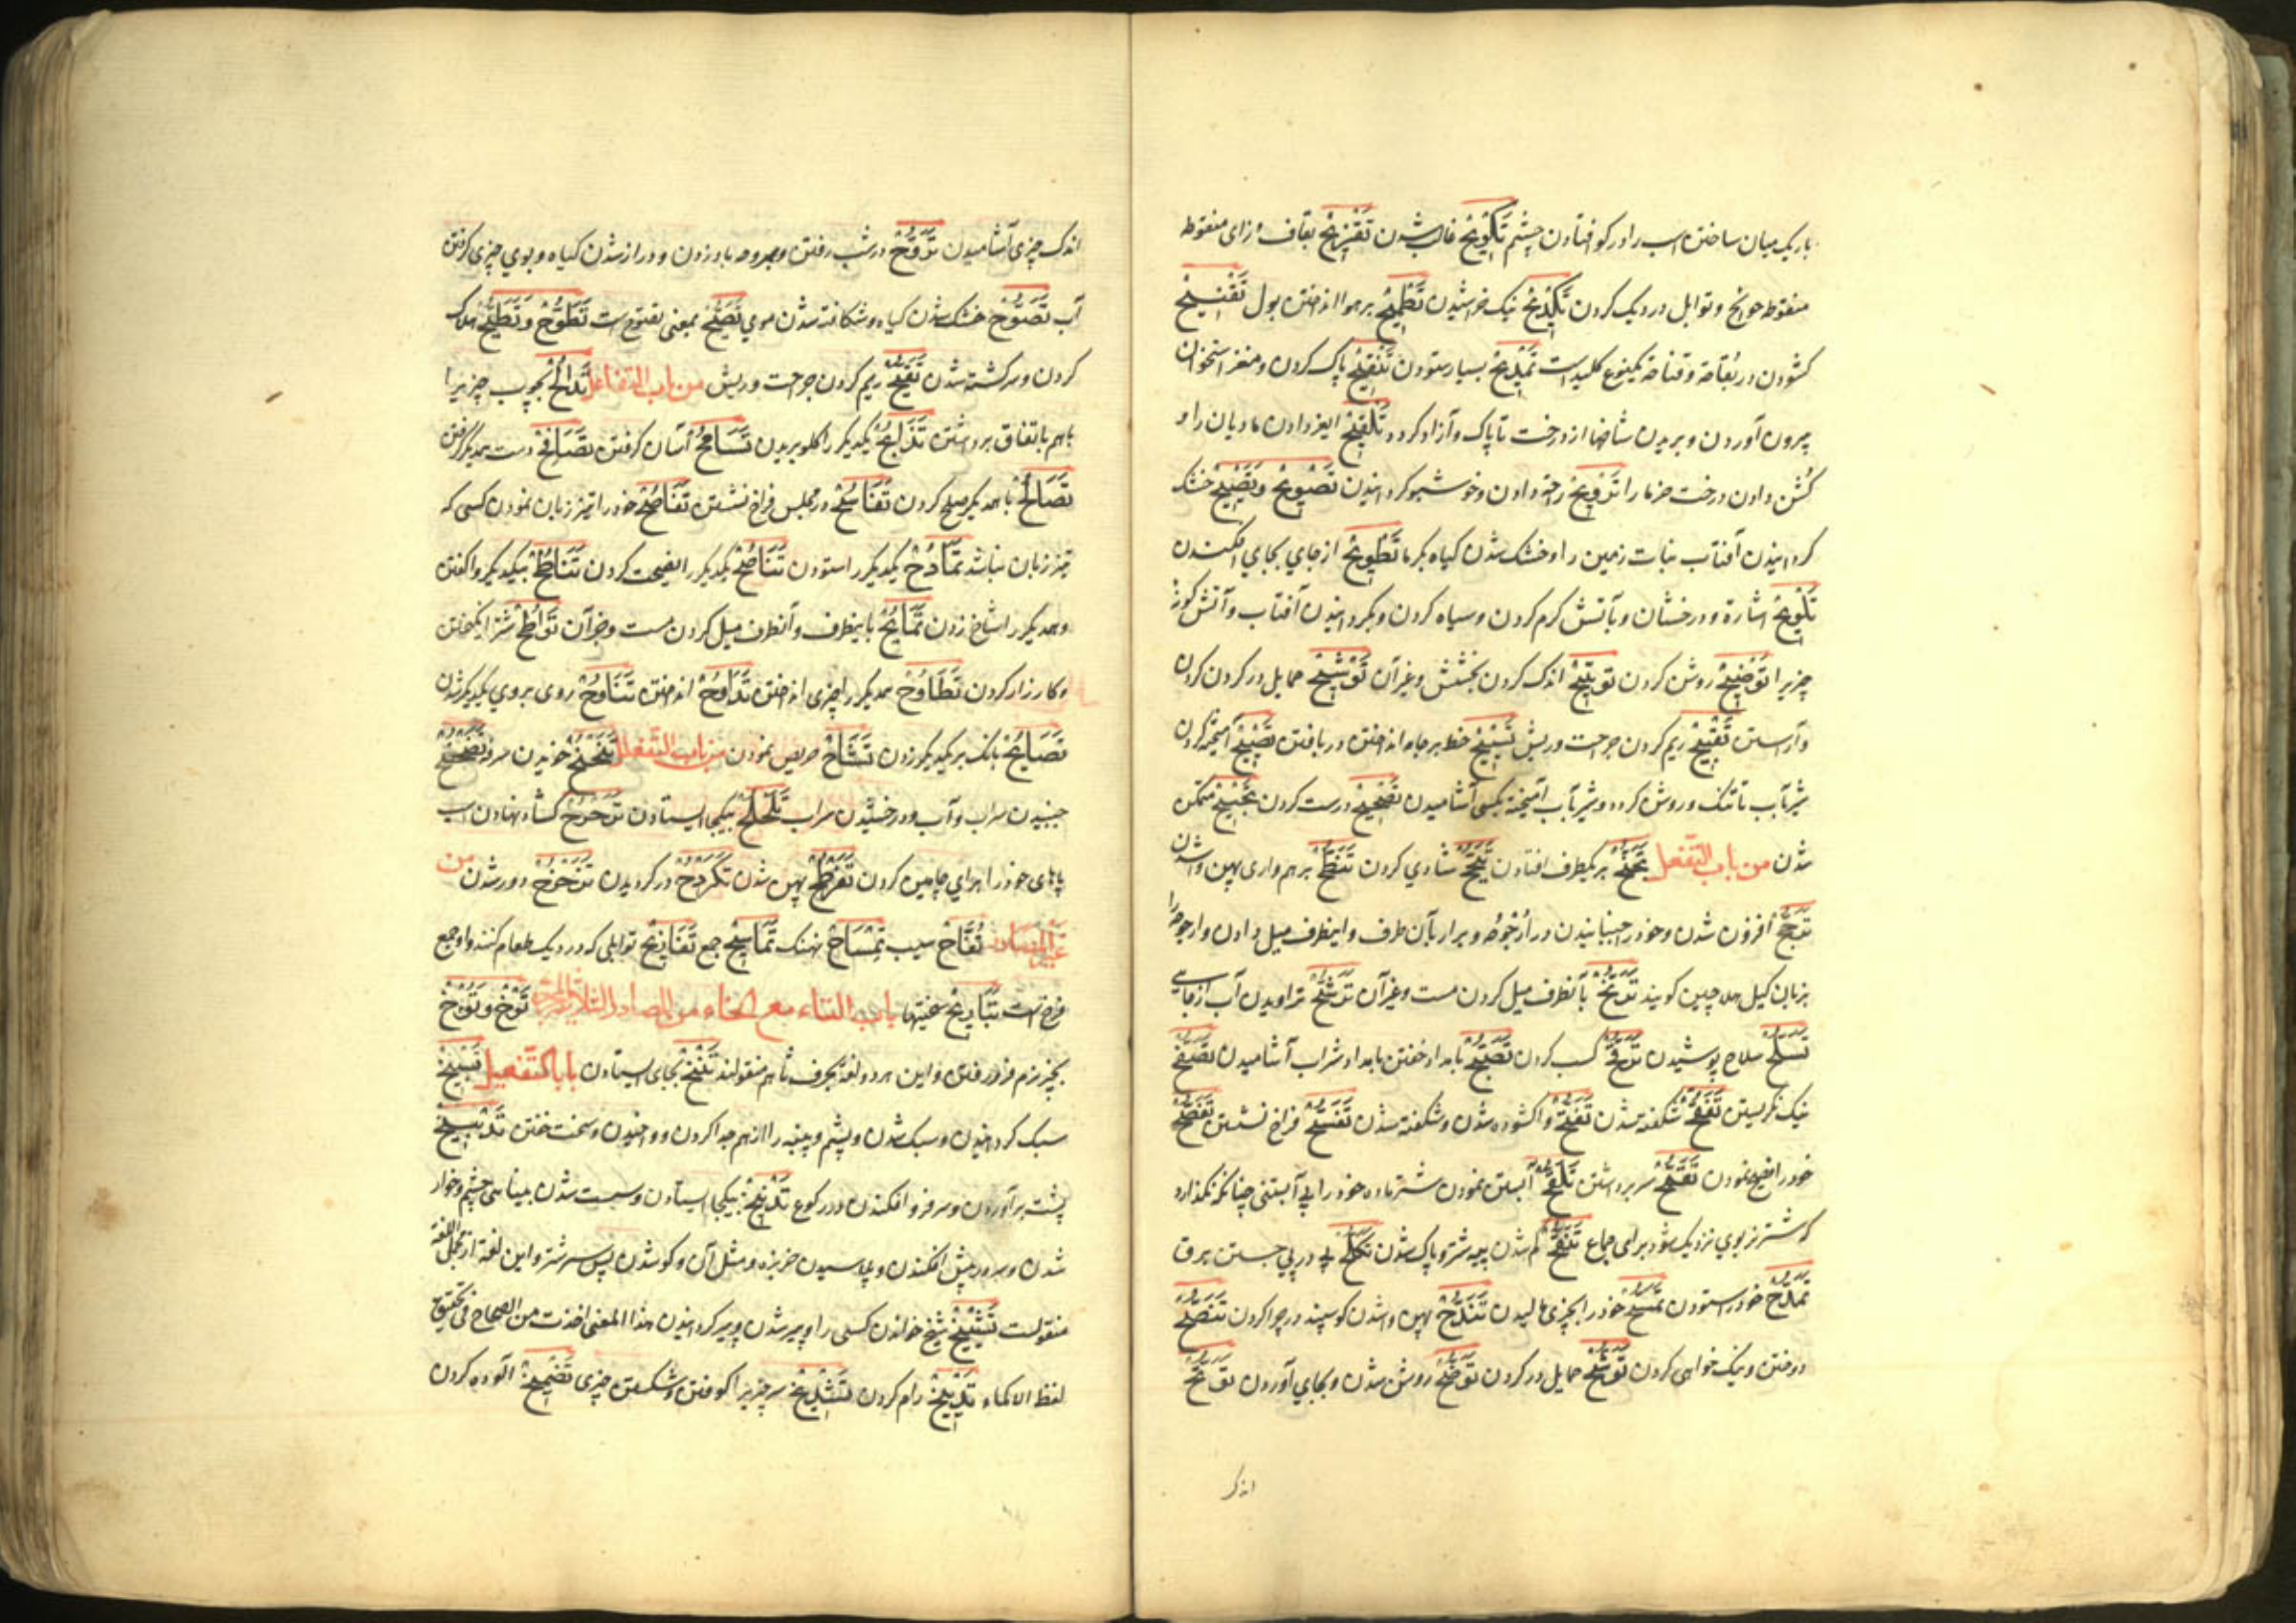 باریک میان ساختن اسب را و در کو افتادن چشم تَکْوِیحٌ غالب شدن تَقْزِیحٌ بقاف و زای منقوطه
منقوطه حوایج و توابل در دیک کردن تَکْدِیحٌ نیک خراشیدن تَطْمِیحٌ بر هوا انداختن بول تَقْنِیحٌ
کشودن در بقناحة و قناحة یکنوع کلیدست تَمْدِیحٌ بسیار ستودن تَنْقِیحٌ پاک کردن و مغز استخوان
بیرون آوردن و بریدن شاخها از درخت تا پاک و آزاد کردد تَلْقِیحٌ ایغر دادن مادیان را و
کُشن دادن درخت خرما را تَرْوِیحٌ راحة دادن و خوشبو کردانیدن تَصْوِیحٌ وَتَصْیِیحٌ خشک
کردانیدن آفتاب نبات زمین را و خشک شدن کیاه بکرما تَطْوِیحٌ از جای بجای افکندن
تَلْوِیحٌ اشارة و درخشان و بآتش کرم کردن و سیاه کردن و بکردانیدن آفتاب و آتش کونه
چیزیرا تَوْضِیحٌ روشن کردن تَوْتِیحٌ اندک کردن بخشش و غیر آن تَوْشِیحٌ حمایل در کردن کردن
و آراستن تَقْیِیحٌ ریم کردن جراحت و ریش تَسْیِیحٌ خط بر جامه انداختن و بافتن تَضْیِیحٌ آمیخته کردن
شیر بآب تا تنک و روش کردد و شیر بآب آمیخته بکسی آشامیدن تَصْحِیحٌ درست کردن تَجْبِیحٌ متمکن
شدن من باب التفعل تَجَنُّحٌ بر یکطرف افتادن تَبَجُّحٌ شادی کردن تَبَطُّحٌ بر همواری پهن واشدن
تَرَجُّحٌ افزون شدن و خود را جنبانیدن در اُرْجُوحَه و برابر بآن طرف و اینطرف میل دادن و ارجوحه را
بزبان کیل هلاچین کویند تَرَنُّحٌ بآنطرف میل کردن مست و غیر آن تَرَشُّحٌ تراویدن آب از جایی
تَسَلُّحٌ سلاح پوشیدن تَرَقُّحٌ کسب کردن تَصَبُّحٌ بامداد خفتن بامداد شراب آشامیدن تَصَفُّحٌ
نیک نکریستن تَفَقُّحٌ شکفته شدن تَفَتُّحٌ واکشوده شدن و شکفته شدن تَفَسُّحٌ فراخ نشستن تَفَصُّحٌ
خود را فصیح نمودن تَقَمُّحٌ سر برداشتن تَلَقُّحٌ آبستن نمودن شتر ماده خود را بی آبستنی چنانکه نکذارد
که شتر نر بوی نزدیک شود برای جماع تَنَقُّحٌ کم شدن پیه شتر و پاک شدن تَکَلُّحٌ پی در پی جستن برق
تَمَدُّحٌ خود را ستودن تَمَسُّحٌ خود را بچیزی مالیدن تَنَدُّحٌ پهن واشدن کوسپند در چراکردن تَنَصُّحٌ
دوختن و نیک خواهی کردن تَوَشُّحٌ حمایل در کردن تَوَضُّحٌ روشن شدن و بجای آوردن تَوَتُّحٌ
اندک
اندک چیزی آشامیدن تَرَوُّحٌ در شب رفتن و بمروحه باد زدن و دراز شدن کیاه و بوی چیزی کرفتن
آب تَصَوُّحٌ خشک شدن کیاه و شکافته شدن موی تَصَیُّحٌ بمعنی تصوّح است تَطَوُّحٌ وَتَطَیُّحٌ هلاک
کردن و سرکشته شدن تَقَیُّحٌ ریم کردن جراحت و ریش من باب التفاعل تَدَالُحٌ بچوب چیزیرا
باهم باتفاق برداشتن تَذَابُحٌ یکدیکر را کلو بریدن تَسَامُحٌ آسان کرفتن تَصَافُحٌ دست همدیکر کرفتن
تَصَالُحٌ با همدیکر صلح کردن تَفَاسُحٌ در مجلس فراخ نشستن تَفَاصُحٌ خود را تیز زبان نمودن کسی که
تیز زبان نباشد تَمَادُحٌ یکدیکر را ستودن تَنَاصُحٌ یکدیکر را نصیحت کردن تَنَاطُحٌ بیکدیکر واکفتن
و همدیکر را شاخ زدن تَمَایُحٌ باینطرف و آنطرف میل کردن مست و جز آن تَوَاطُحٌ شر انکیختن
و کارزار کردن تَطَاوُحٌ همدیکر را چیزی انداختن تَرَاوُحٌ انداختن تَنَاوُحٌ روی بروی یکدیکر شدن
تَصَایُحٌ بانک بر یکدیکر زدن تَشَاحٌّ حریص نمودن من باب التفعلل تَنَحْنُحٌ خنیدن سرفه تَضَحْضُحٌ
جنبیدن سراب و آب و درخشیدن سراب تَلَحْلُحٌ بیکجا ایستادن تَرَحْرُحٌ کشاده نهادن اسب
پاهای خود را برای چامیدن کردن تَفَرْطُحٌ پهن شدن تَکَرْدُحٌ در کردیدن تَزَحْزُحٌ دور شدن من
غیر المصادر تُفَّاحٌ سیب تِمْسَاحٌ نهنک تَمَاسِیحُ جمع تَقَازِیحُ توابلی که در دیک طعام کنند و او جمع
قزح است تَبَارِیحُ سختیها باب التاء مع الخاء من المصادر الثلاثی المجرد تَوْخٌ وَتَوْخٌ
بچیز نرم فرو رفتن و این هر دو لغة بحرف ثا هم منقولند تَنْخٌ بجای ایستادن باب التفعیل تَسْبِیخٌ
سبک کردانیدن و سبک شدن و پشم و پنبه را از هم جدا کردن و واخیدن و سخت خفتن تَدْبِیخٌ
پشت بر آوردن و سر فرو افکندن در رکوع تَدْنِیخٌ بیکجا ایستادن و سست شدن بینایی چشم و خوار
شدن و سر در پیش افکندن و پلاسیدن خربزه و مثل آن و کو شدن پس سر شتر و این لغة از مجمل اللغة
منقولست تَشْیِیخٌ شیخ خواندن کسی را و پیر شدن و پیر کردانیدن هذا المعنی اخذت من الصحاح فی تحقیق
لفظ الاکماء تَدْیِیخٌ رام کردن تَشْدِیخٌ سر چیزیرا کوفتن و شکستن چیزی تَضْمِیخٌ آلوده کردن